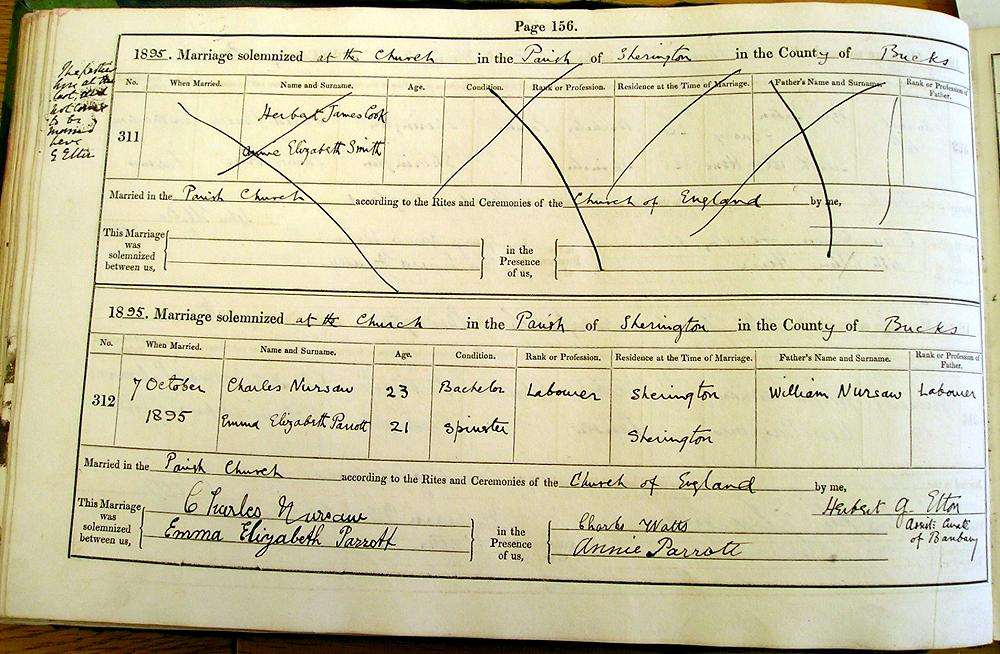 Page 156.
1895. Marriage solemnized at the Church in the Parish of Sherington in the County of Bucks
No. When Married. Name and Surname. Age. Condition. Rank or Profession. Residence at the Time of Marriage. Father's Name and Surname. Rank or Profession of Father.
Herbert James Cook
311
Annie Elizabeth Smith
at the
last
to be
married
here
G Elton
Married in the Parish Church according to the Rites and Ceremonies of the Church of England by me,
This Marriage was solemnized between us,
in the Presence of us,
1895. Marriage solemnized at the Church in the Parish of Sherington in the County of Bucks
No. When Married. Name and Surname. Age. Condition. Rank or Profession. Residence at the Time of Marriage. Father's Name and Surname. Rank or Profession of Father.
7 October Charles Nursaw 23 Bachelor Labourer Sherington William Nursaw Labourer
312
1895 Emma Elizabeth Parrott 21 Spinster Sherington
Married in the Parish Church according to the Rites and Ceremonies of the Church of England by me,
Herbert G. Elton
Assist: Curate
of Banbury
This Marriage was solemnized between us,
Charles Nursaw
Emma Elizabeth Parrott
in the Presence of us,
Charles Watts
Annie Parrott